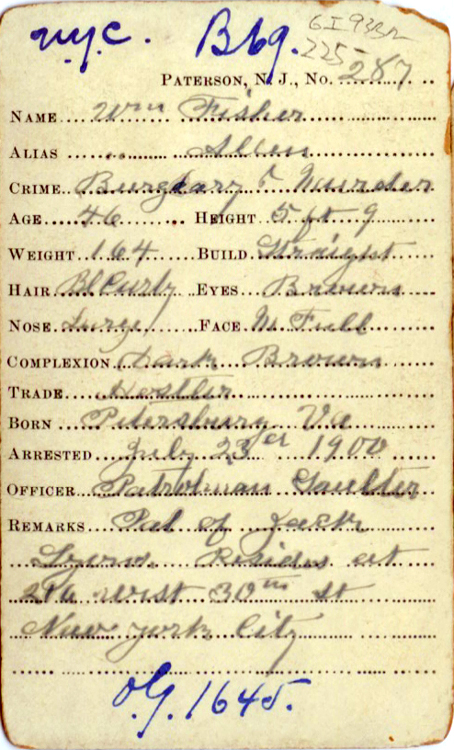 N.Y.C. Bbg.
225
PATERSON, N. J., No. 287
NAME Wm Fisher
ALIAS Allen
CRIME Burglary & Murder
AGE 46 HEIGHT 5 ft 9
WEIGHT 164 BUILD Straight
HAIR Bl Curly EYES Brown
NOSE Large FACE M. Full
COMPLEXION Dark Brown
TRADE Hostler
BORN Petersburg Va
ARRESTED July 23 1900
OFFICER Patrolman Gaulter
REMARKS Pal of Jack
Resides at
West 30th st
New York City
O.G. 1645.